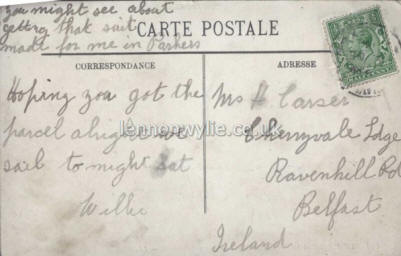 you might see about
getting that suit
made for me in Parkers
CARTE POSTALE
CORRESPONDANCE
Hoping you got the
parcel alright we
sail to night sat
Willie
ADRESSE
Ms H Carser
Cherryvale Lodge
Ravenhill Rd
Belfast
Ireland
lennonwylie.co.uk